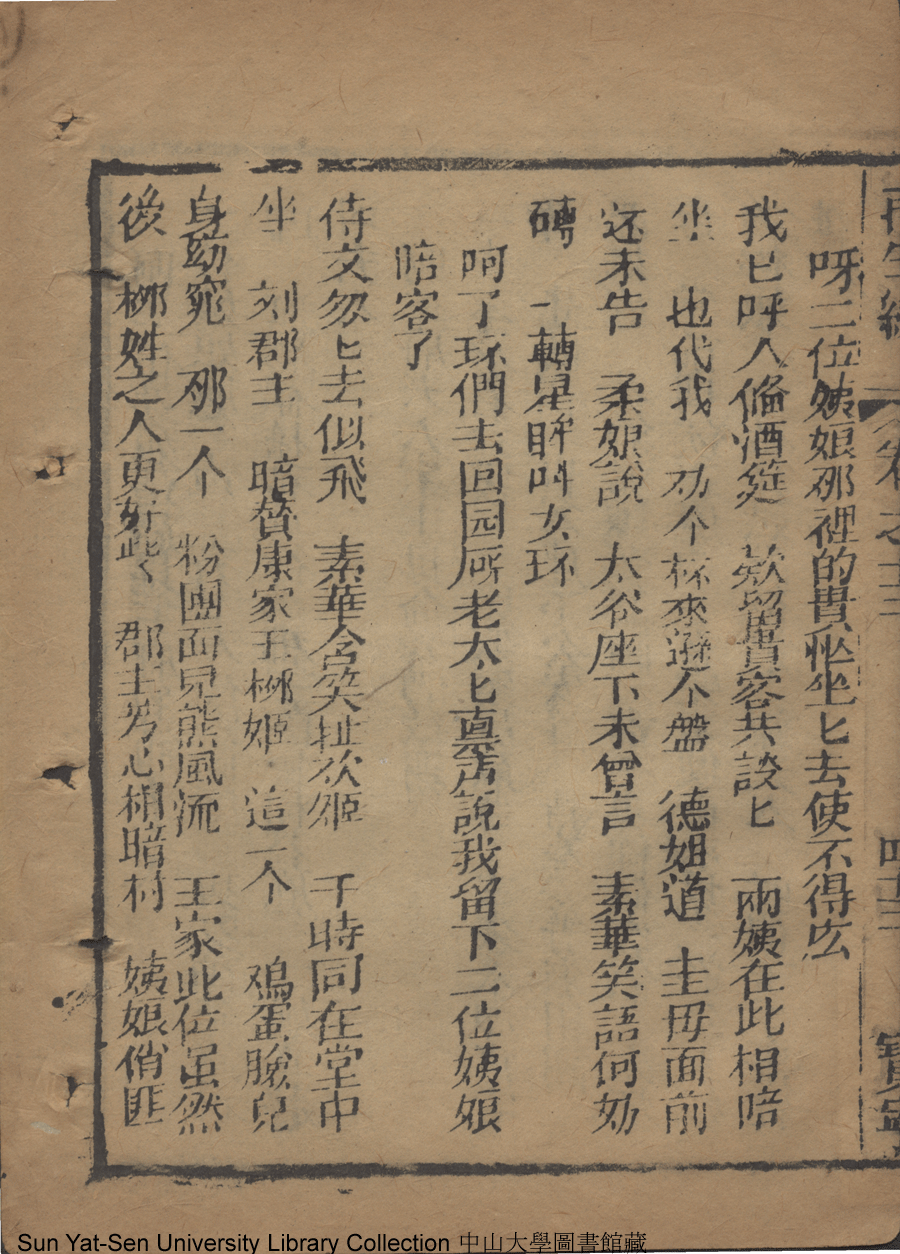 再生緣 卷之十三 四十三 寶
呀二位姨娘那裡的貴恙坐匕去使不得広
我已呼人俻酒筵 欵留貴客共談匕 兩姨在此相暗
坐 也代我 劝个杯來遜个盤 德姐道 主毋面前
还未告 柔娘說 太爷座下未曾言 素華笑語何妨
礙 一轉星眸呌女环
呵了环們去回园所老太匕真君說我留下二位姨娘
暗客了
侍文匆匕去似飛 素華含笑扯欢姬 千時同在堂中
坐 刻郡主 暗賛康家王栁姬 這一个 鳮蛋臉兒
身窈窕 那一个 粉團面兒㷱風流 王家此位虽然
後 栁姓之人更好些 郡主芳心相暗村 姨娘俏匪
Sun Yat-Sen University Library Collection 中山大學圖書館藏